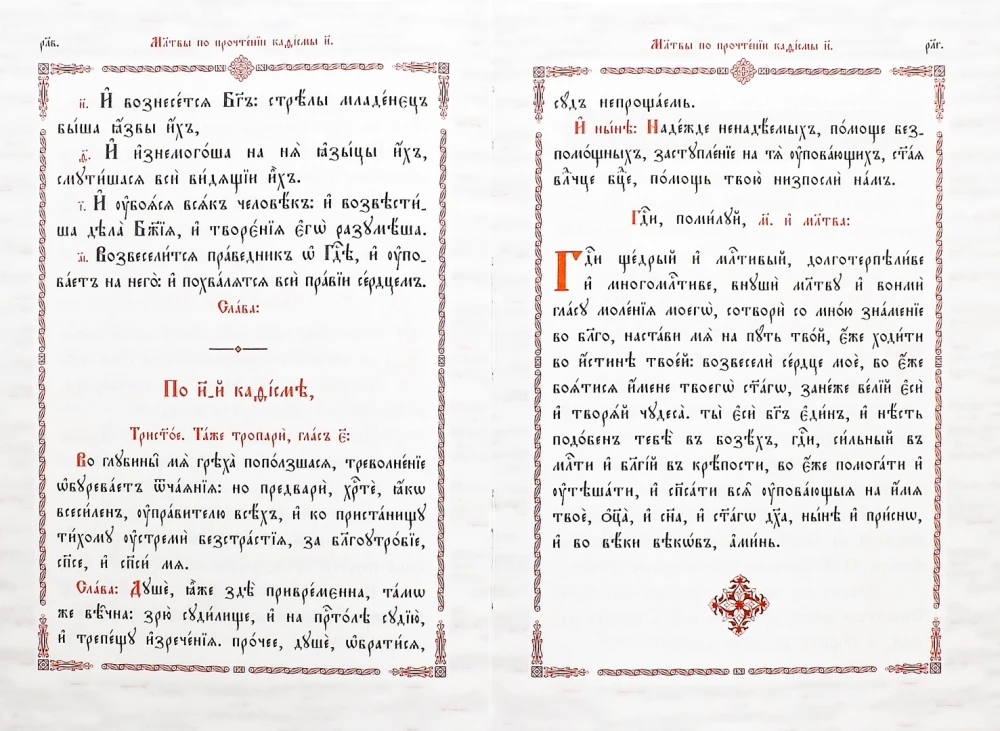 рл҃в.
Мл҃твы по прочте́нїи каѳі́смы и҃.
и҃. И҆ вознесе́тсѧ Бг҃ъ: стрѣ́лы младе́нєцъ
бы́ша ꙗ҆́звы и҆́хъ,
ѳ҃. И҆ и҆знемого́ша на нѧ̀ ѧ҆зы́цы и҆́хъ,
смꙋти́шасѧ всѝ ви́дѧщїи и҆̀хъ.
і҃. И҆ ᲂу҆боѧ́сѧ всѧ́къ человѣ́къ: и҆ возвѣсти́-
ша дѣла̀ Бж҃їѧ, и҆ творє́нїѧ є҆гѡ̀ разꙋмѣ́ша.
а҃і. Возвесели́тсѧ пра́ведникъ ѡ҆ Гдⷭ҇ѣ, и҆ ᲂу҆по-
ва́етъ на него̀: и҆ похва́лѧтсѧ всѝ пра́вїи се́рдцемъ.
Сла́ва:
По и҃-й каѳі́смѣ,
Трист҃о́е. Та́же тропарѝ, гла́съ є҃:
Во глꙋбины̀ мѧ̀ грѣха̀ попо́лзшасѧ, треволне́нїе
ѡ҆бꙋрева́етъ ѿча́ѧнїѧ: но предварѝ, хрⷭ҇тѐ, ꙗ҆́кѡ
всеси́ленъ, ᲂу҆пра́вителю всѣ́хъ, и҆ ко приста́нищꙋ
ти́хомꙋ ᲂу҆стремѝ безстра́стїѧ, за бл҃гоꙋтро́бїе,
сп҃се, и҆ сп҃си́ мѧ.
Сла́ва: Дꙋшѐ, ꙗ҆̀же здѣ̀ привре́мєнна, та́мѡ
же вѣ̑чна: зрю̀ сꙋди́лище, и҆ на прⷭ҇то́лѣ сꙋдїю̀,
и҆ трепе́щꙋ и҆зрече́нїѧ. про́чее, дꙋшѐ, ѡ҆брати́сѧ,
Мл҃твы по прочте́нїи каѳі́смы и҃.
рл҃г.
сꙋ́дъ непроща́емь.
И҆ ны́нѣ: Наде́жде ненадѣ́емыхъ, по́моще без-
помо́щныхъ, застꙋпле́нїе на тѧ̀ ᲂу҆пова́ющихъ, ст҃а́ѧ
влⷣчце бц҃е, по́мощь твою̀ низпослѝ на́мъ.
Гдⷭ҇и, поми́лꙋй, м҃. и҆ мл҃тва:
Гдⷭ҇и ще́дрый и҆ млⷭ҇тивый, долготерпѣли́ве
и҆ многомлⷭ҇тиве, внꙋшѝ мл҃твꙋ и҆ вонмѝ
гла́сꙋ моле́нїѧ моегѡ̀, сотворѝ со мно́ю зна́менїе
во бл҃го, наста́ви мѧ̀ на пꙋ́ть тво́й, є҆́же ходи́ти
во и҆́стинѣ твое́й: возвеселѝ се́рдце моѐ, во є҆́же
боѧ́тисѧ и҆́мене твоегѡ̀ ст҃а́гѡ, зане́же ве́лїй є҆сѝ
и҆ творѧ́й чꙋдеса̀. ты̀ є҆сѝ бг҃ъ є҆ди́нъ, и҆ нѣ́сть
подо́бенъ тебѣ̀ въ бозѣ́хъ, гдⷭ҇и, си́льный въ
млⷭ҇ти и҆ бл҃гі́й въ крѣ́пости, во є҆́же помога́ти и҆
ᲂу҆тѣша́ти, и҆ сп҃са́ти всѧ̑ ᲂу҆пова́ющыѧ на и҆́мѧ
твоѐ, ѻ҆ц҃а̀, и҆ сн҃а, и҆ ст҃а́гѡ дх҃а, ны́нѣ и҆ при́снѡ,
и҆ во вѣ́ки вѣкѡ́въ, а҆ми́нь.